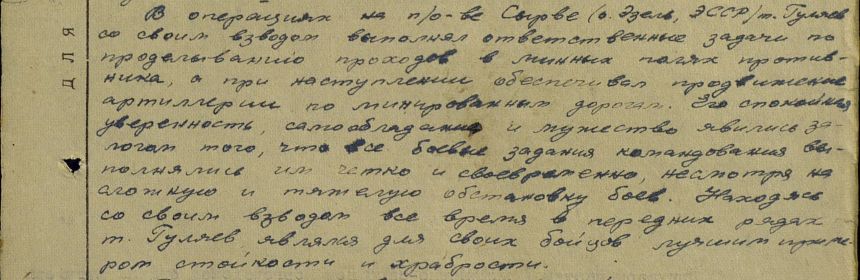 ДЛЯ
В операциях на п/о-ве Сырве (о. Эзель, ЭССР/т. Гуляев
со своим взводом выполнял ответственные задачи по
проделыванию проходов в минных полях против-
ника, а при наступлении обеспечивал продвижение
артиллерии по минированным дорогам. Его спокойная
уверенность, самообладание и мужество явились за-
логом того, что все боевые задания командования вы-
полнялись им четко и своевременно, несмотря на
сложную и тяжелую обстановку боев. Находясь
со своим взводом все время в передних рядах
т. Гуляев являлся для своих бойцов лучшим приме-
ром стойкости и храбрости.